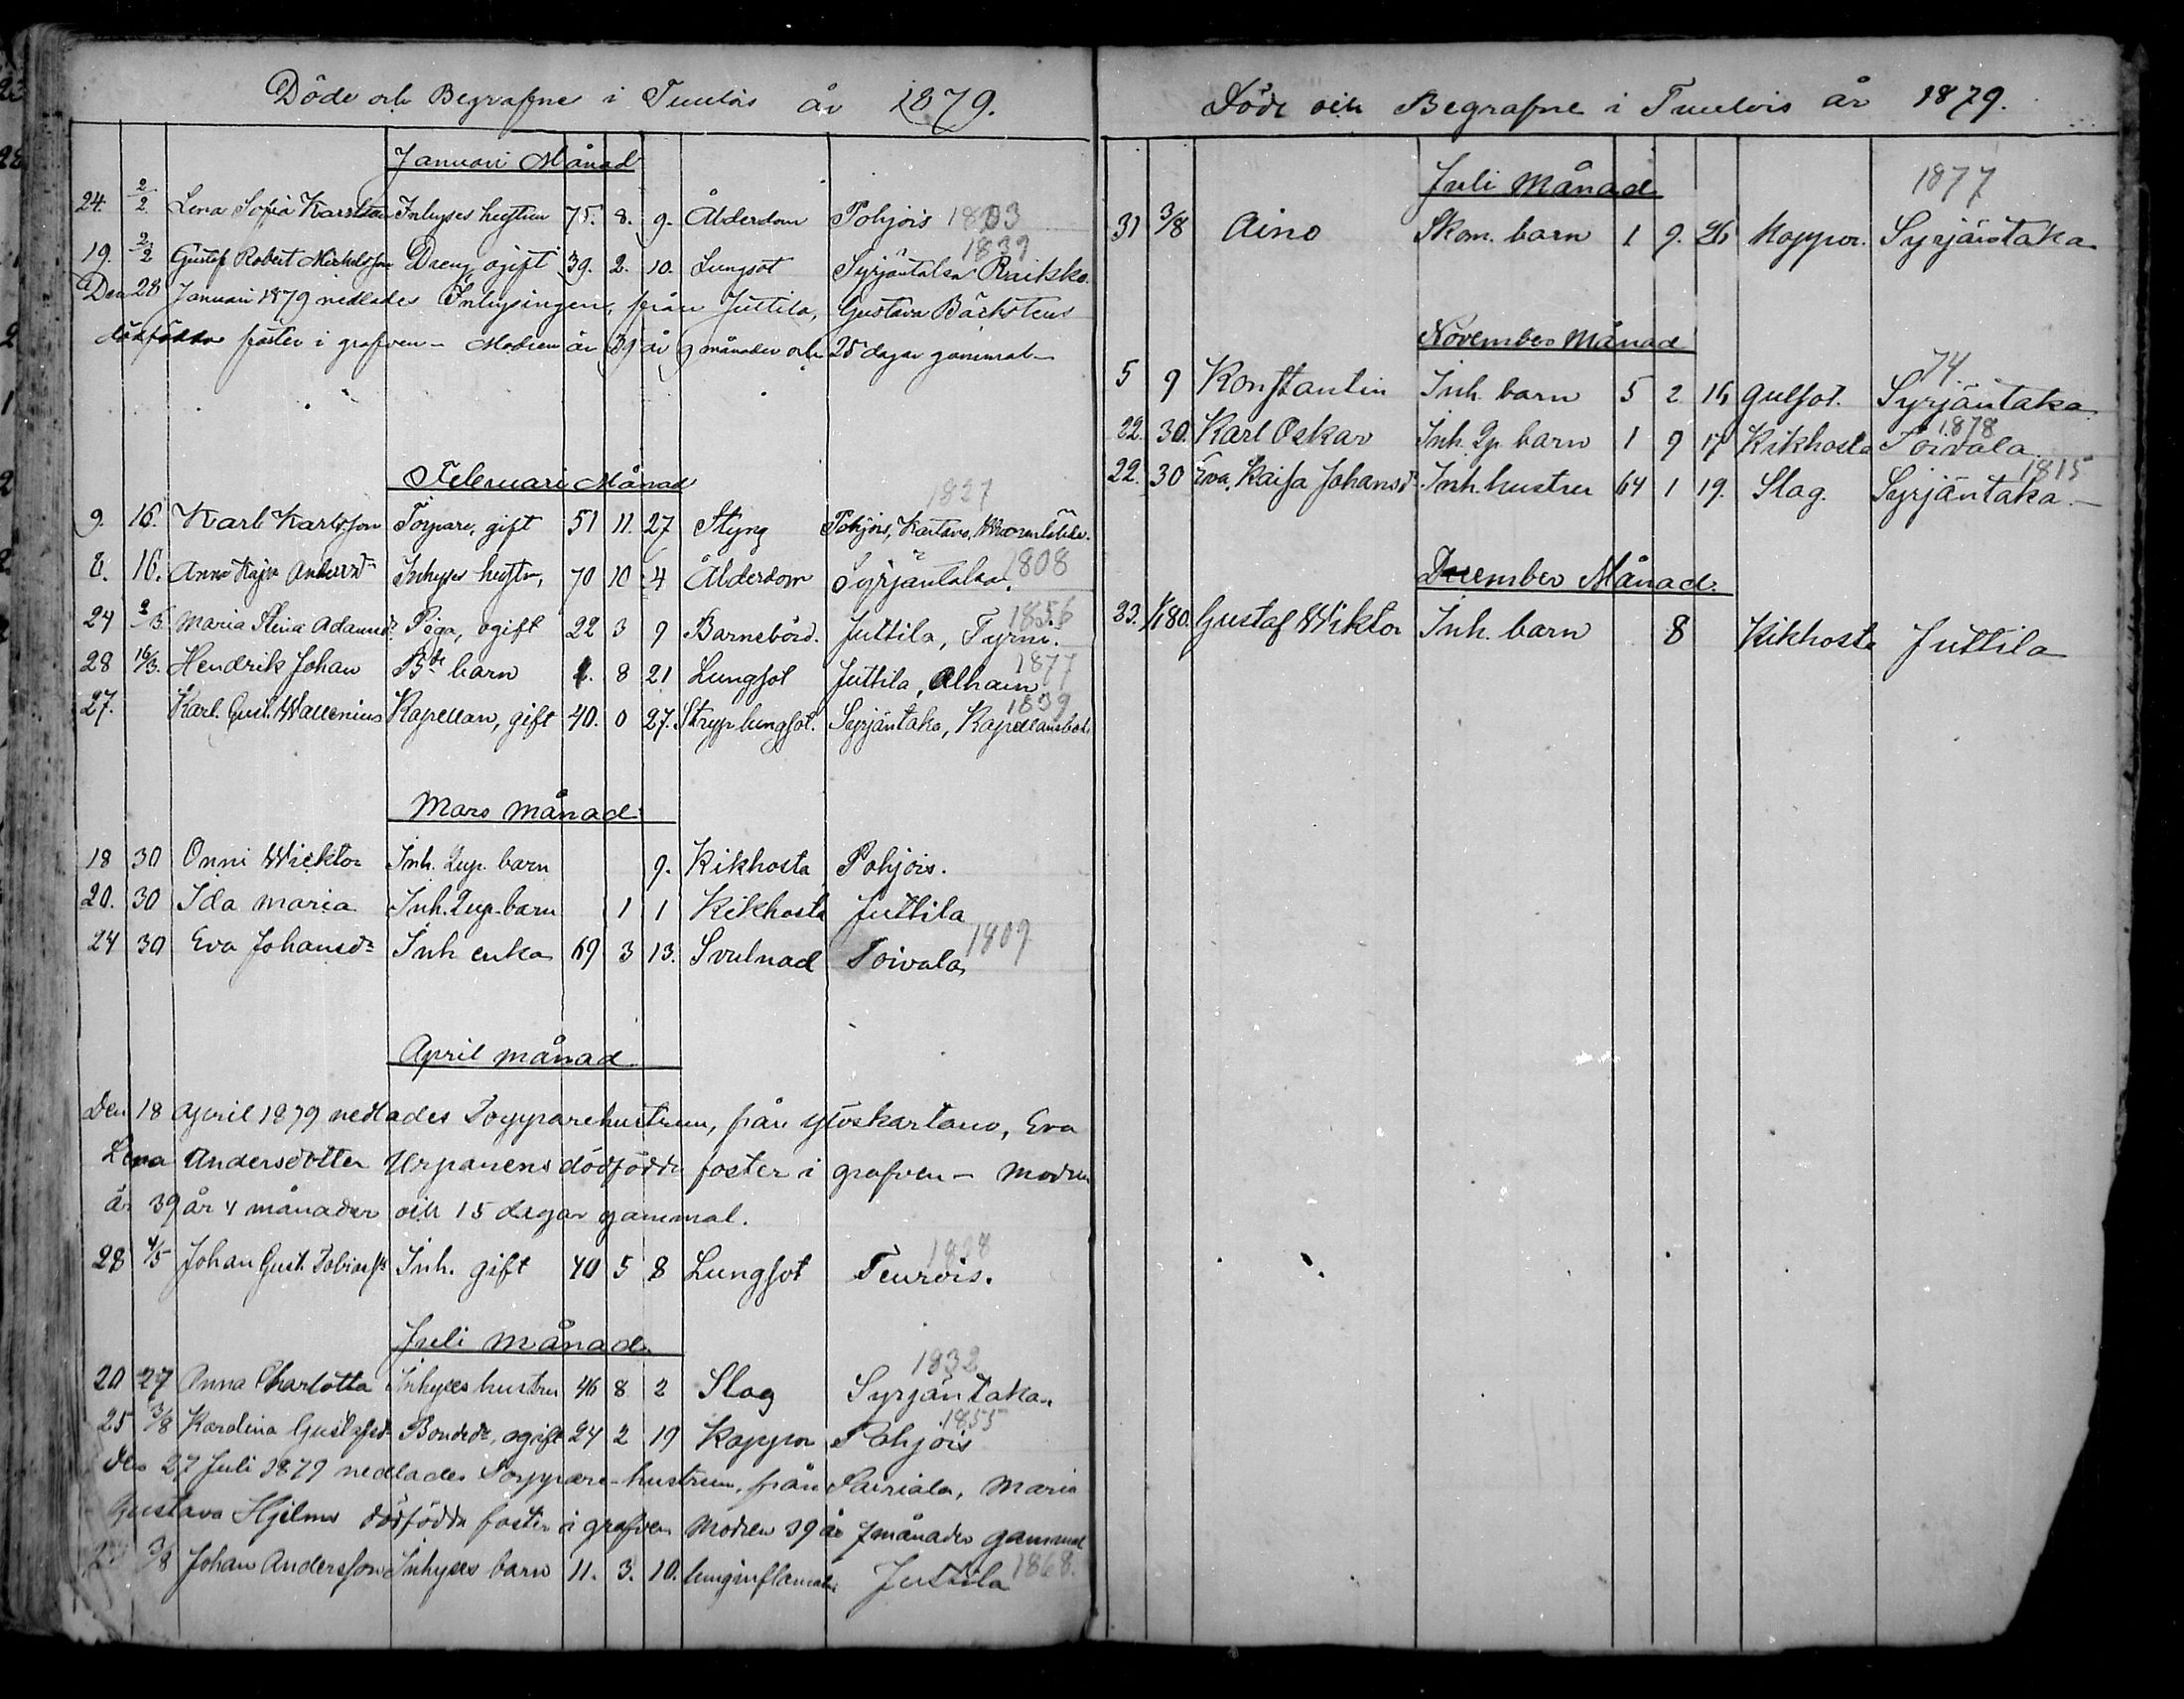 Döde och Begrafne i Tuulois år 1879.
Januari Månad
24. 2/2 Lena Sofia Inhyses 75. 8. 9. Ålderdom Pohjois 1803
1839
19. 2/2 Gustaf Robert Dreng ogift 39. 2. 10. Lungsot Syrjäntaka
Den 28 Januari 1879 nedlades Inhysingen, från Juttila, Gustava Bäckstens
dödfödda foster i grafven – Modren är 39 år 9 månader och 25 dagar gammal –
Februari Månad
1827
9. 16. Karl Karlsson Torpare, gift 51 11. 27 Styng Pohjois,
8. 16. Anna Kajsa Andersdr Inhyses 70 10 4 Ålderdom Syrjäntaka. 1808
24 2/3 Maria Stina Adamsdr Piga, ogift 22 3 9 Barnsbörd. Juttila, Tyrni. 1856
28 16/3. Hendrik Johan Bde barn 1. 8 21 Lungsot Juttila, Alhain 1877
27. Karl. Gust. Wallenius Kapellan, gift 40. 0 27. Stryp lungsot. Syrjäntaka, 1839
Mars månad
18 30 Onni Wicktor Inh. barn 9. Kikhosta Pohjois.
20. 30 Ida Maria Inh. barn 1 1 Kikhosta Juttila
24 30 Eva Johansdr Inh enka 69 3 13. Svulnad Toivala 1809
April månad.
Den 18 April 1879 nedlades Torpparehustrun, från Ylöskartano, Eva
Lena Andersdotter Urpanens dödfödde foster i grafven – modren
är 39 år 4 månader och 15 dagar gammal.
28 4/5 Johan Gust. Inh. gift 40 5 8 Lungsot Teurois. 1838
Juli månad.
1832
20 27 Anna Charlotta Inhyses hustru 46 8 2 Slag Syrjäntaka.
25 3/8 Karolina Gustafsdr Bondedr, ogift 24 2 19 Koppor Pohjois 1855
Den 27 Juli 1879 nedlades Torppare-hustrun, från Sairiala, Maria
Gustava Hjelms dödfödda foster i grafven Modren 39 år 7 månader gammal
3/8 Johan Andersson Inhyses barn 11. 3. 10. Juttila 1868.
Döde och Begrafne i Tuulois år 1879.
Juli Månad
1877
31 3/8 Aino Skom. barn 1 9. 26 Koppor. Syrjäntaka
November Månad
74
5 9 Konstantin Inh. barn 5 2 16 Gulsot. Syrjäntaka
22. 30. Karl Oskar Inh. barn 1 9 17 Kikhosta Toivala 1878
22. 30 Eva Kaisa Johansdr Inh. hustru 64 1 19. Slag. Syrjäntaka. – 1815
December Månad.
23. 1/1 80. Gustaf Wiktor Inh. barn 8 Kikhosta Juttila